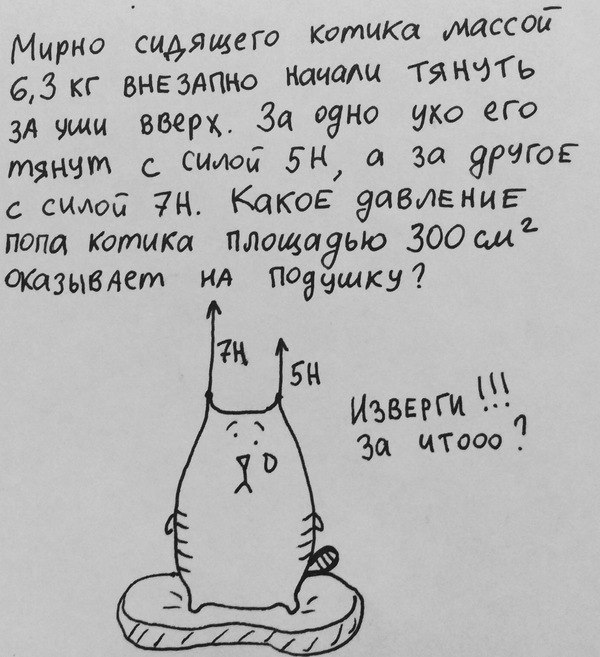 Мирно сидящего котика массой
6,3 кг внезапно начали тянуть
за уши вверх. За одно ухо его
тянут с силой 5Н, а за другое
с силой 7Н. Какое давление
попа котика площадью 300 см²
оказывает на подушку?
7Н
5Н
Изверги!!!
За чтооо?